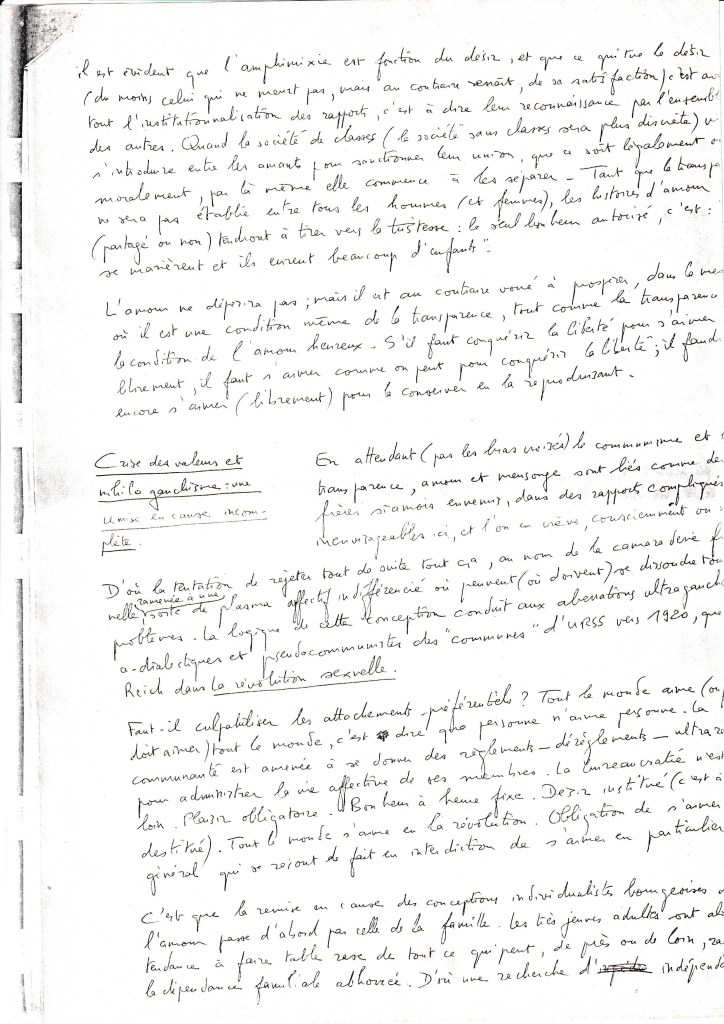 il est évident que l'amphimixie est fonction du désir, et que ce qui tue le désir
(du moins celui qui ne meurt pas, mais au contraire renaît, de sa satisfaction) c'est av
tout l'institutionnalisation des rapports, c'est à dire leur reconnaissance par l'ensembl
des autres. Quand la société de classes (la société sans classes sera plus discrète) v
s'introduire entre les amants pour sanctionner leur union, que ce soit légalement o
moralement, par là même elle commence à les séparer - Tant que la transpa
ne sera pas établie entre tous les hommes (et femmes), les histoires d'amour
(partagé ou non) tendront à tirer vers la tristesse : le seul bonheur autorisé, c'est :
se marièrent et ils eurent beaucoup d'enfants".
L'amour ne dépérira pas ; mais il est au contraire voué à prospérer, dans la me
où il est une condition même de la transparence, tout comme la transparence
la condition de l'amour heureux. S'il faut conquérir la liberté pour s'aimer
librement, il faut s'aimer comme on peut pour conquérir la liberté ; il faud
encore s'aimer (librement) pour la conserver en la reproduisant.
Crise des valeurs et
nihilo gauchisme : une
remise en cause incom-
plète.
En attendant (pas les bras croisés) le communisme et s
transparence, amour et mensonge sont liés comme de
frères siamois ennemis, dans des rapports compliqués
inenvisageables ici, et l'on en crève, consciemment ou n
D'où la tentation de rejeter tout de suite tout ça, au nom de la camaraderie f
ramenée à une
nelle sorte de plasma affectif indifférencié où peuvent (où doivent) se dissoudre tou
problèmes. La logique de cette conception conduit aux aberrations ultragauche
a-dialectiques et pseudocommunistes des "communes" d'URSS vers 1920, que
Reich dans la révolution sexuelle.
Faut-il culpabiliser les attachements préférentiels ? Tout le monde aime (ou
doit aimer) tout le monde, c'est dire que personne n'aime personne. La
communauté est amenée à se donner des règlements - dérèglements - ultra re
pour administrer la vie affective de ses membres. La bureaucratie n'est
loin. Plaisir obligatoire. Bonheur à heure fixe. Désir institué (c'est à
destitué). Tout le monde s'aime en la révolution. Obligation de s'aimer
général qui se résout de fait en interdiction de s'aimer en particulier
C'est que la remise en cause des conceptions individualistes bourgeoises d
l'amour passe d'abord par celle de la famille. Les très jeunes adultes ont al
tendance à faire table rase de tout ce qui peut, de près ou de loin, ra
la dépendance familiale abhorrée. D'où une recherche d' indépenda